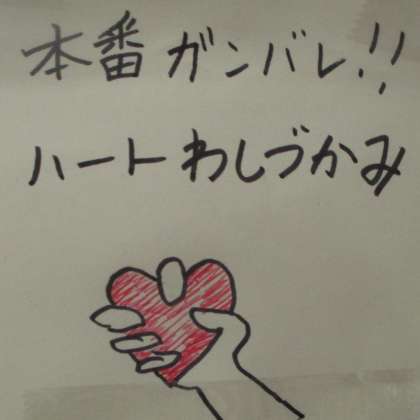 本番ガンバレ!!
ハートわしづかみ